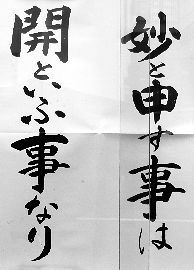 妙と申す事は
開といふ事なり